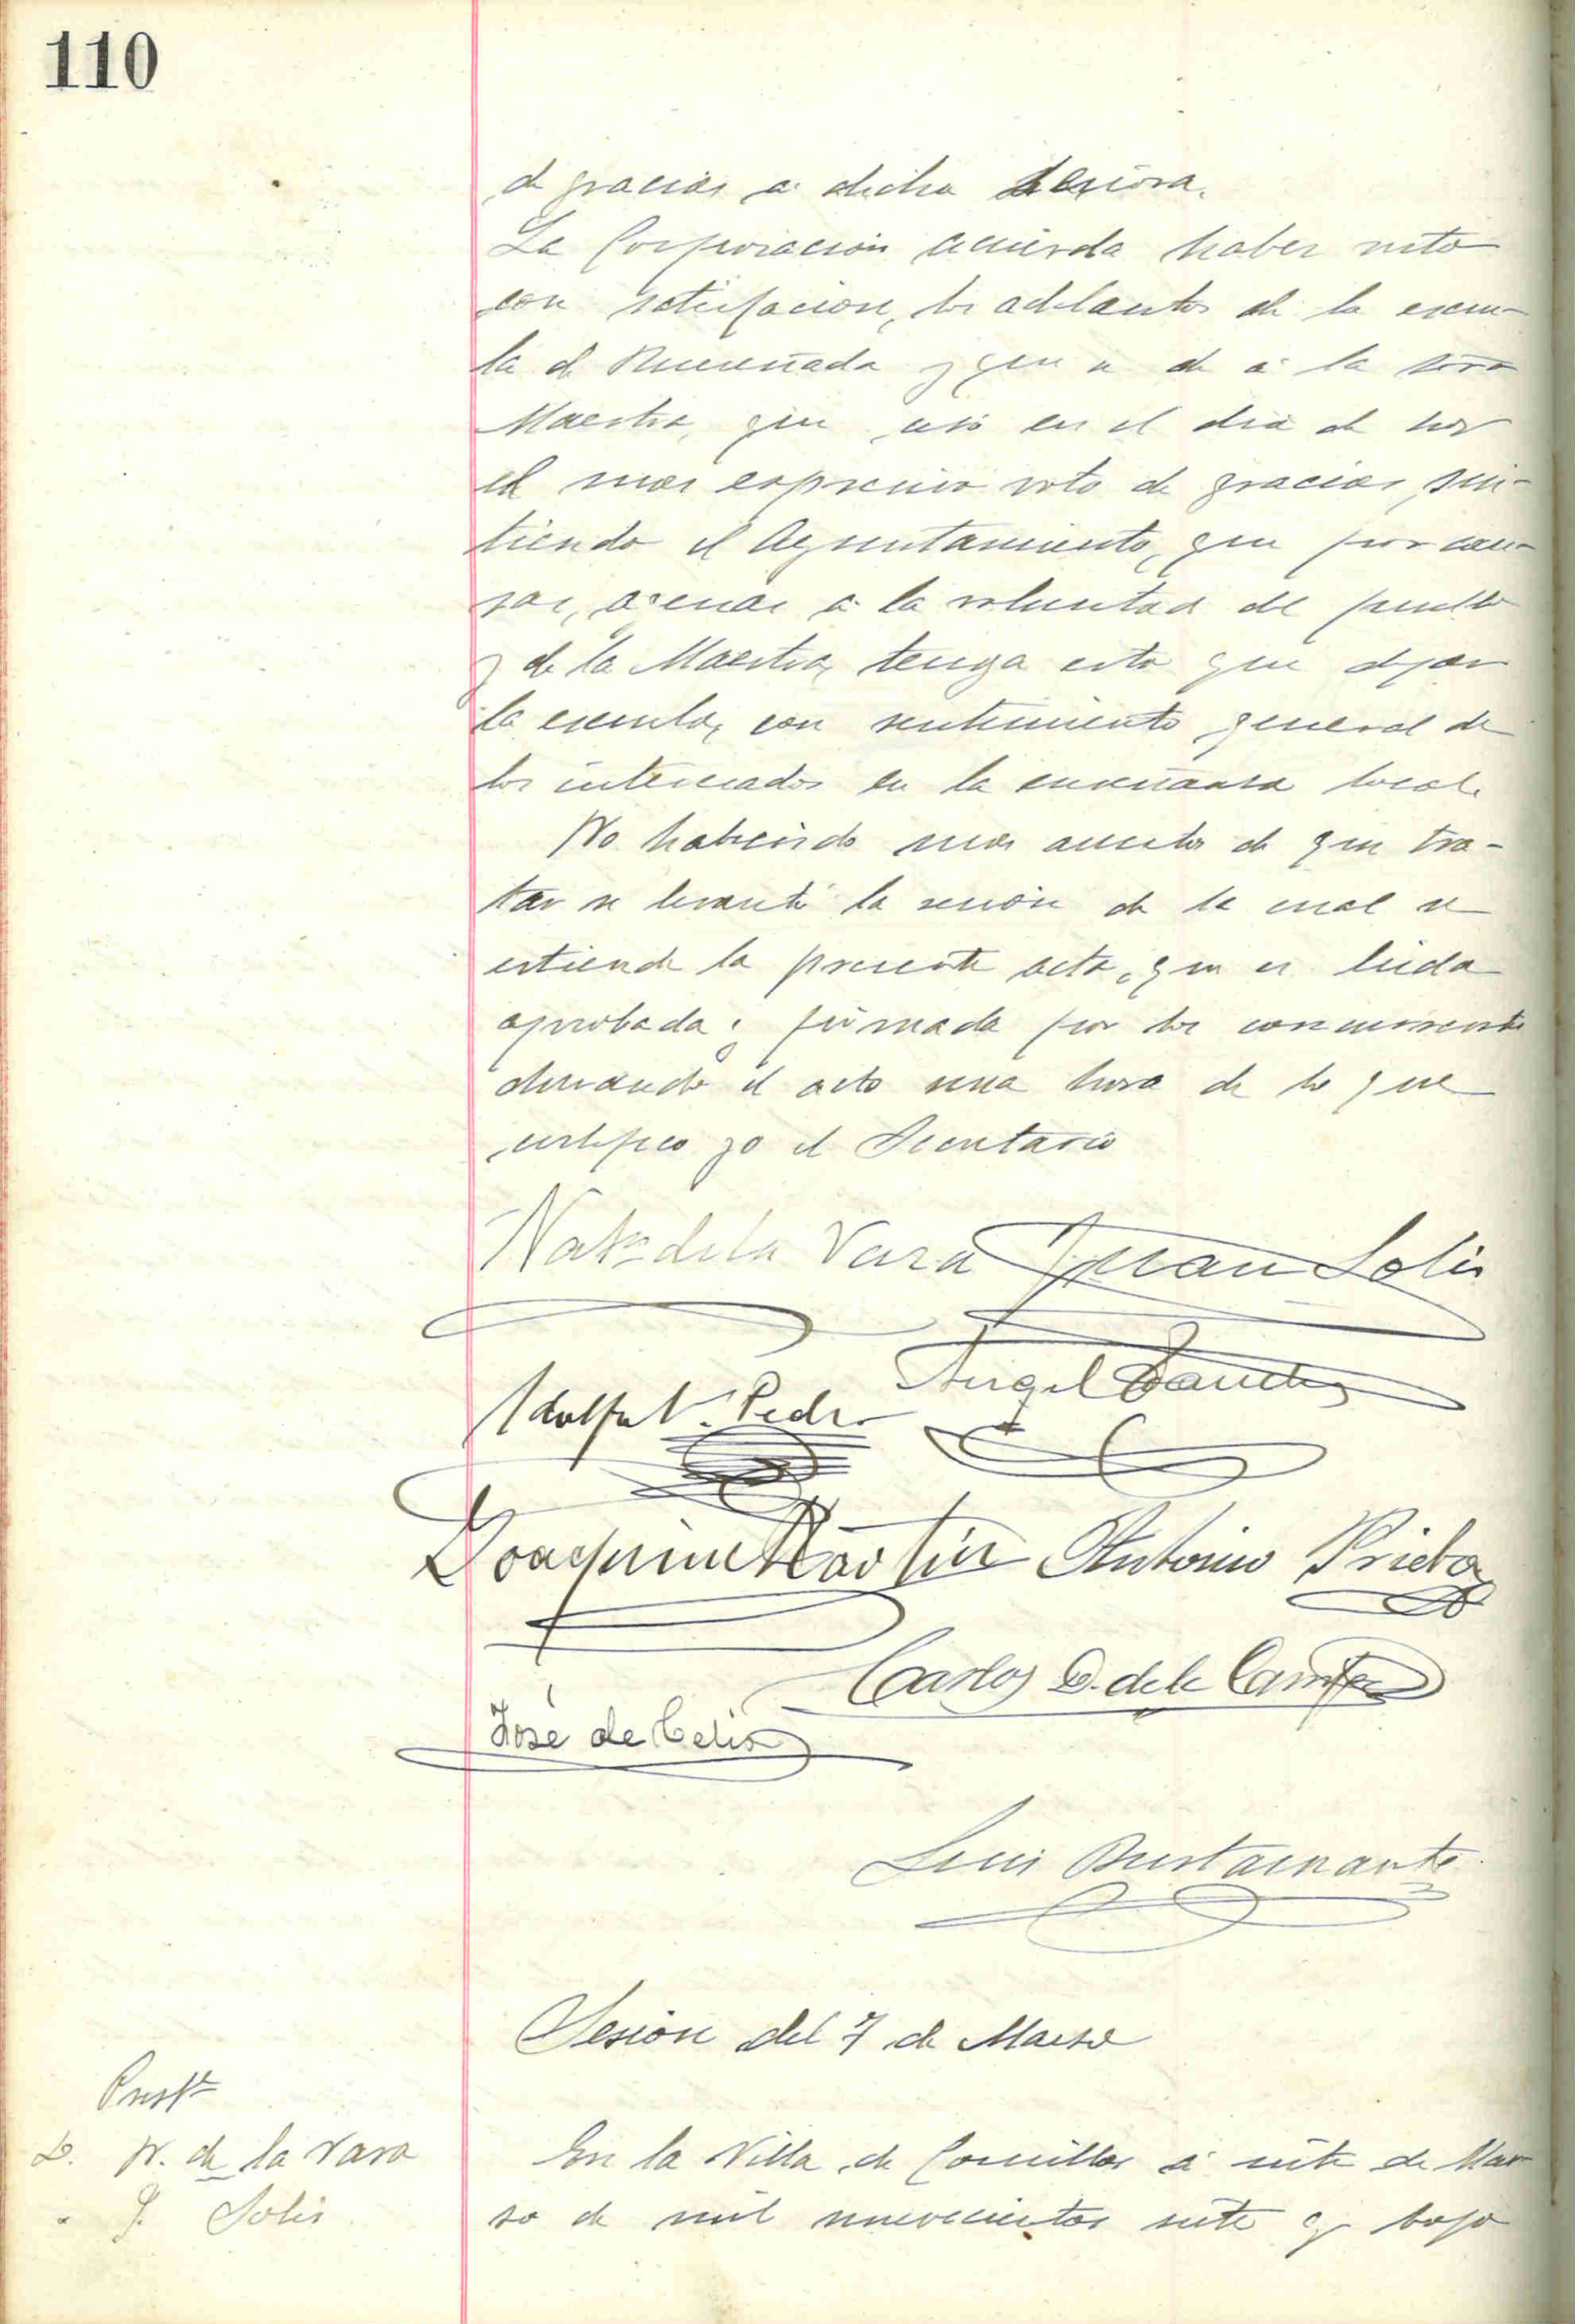 110
de gracias a dicha Señora.
La Corporación acuerda haber visto
con satisfacion, los adelantos de la escue-
la de Ruiseñada y que se de á la Sra
Maestra, que cesó en el dia de hoy
el mas expresivo voto de gracias, sin-
tiendo el Ayuntamiento, que por cau-
sas, agenas á la voluntad del pueblo
y de la Maestra, tenga esta que dejar
la escuela, con sentimiento general de
los interesados en la enseñanza local.
No habiendo mas asuntos de que tra-
tar se levantó la sesión de la cual se
estiende la presente acta, que es leida
aprobada y firmada por los concurrentes
durando el acto una hora de lo que
certifico yo el Secretario
Nats de la Vara Juan Solis
Angel Sanchez
Adolfo V. Pedro
Joaquin Martin Antonio Prieto
Carlos D. de la Campa
José de Celis
Luis Bustamante
Sesión del 7 de Marzo
Preste
D. N. de la Vara
" J. Solis
En la Villa de Comillas á siete de Mar
zo de mil novecientos siete y bajo